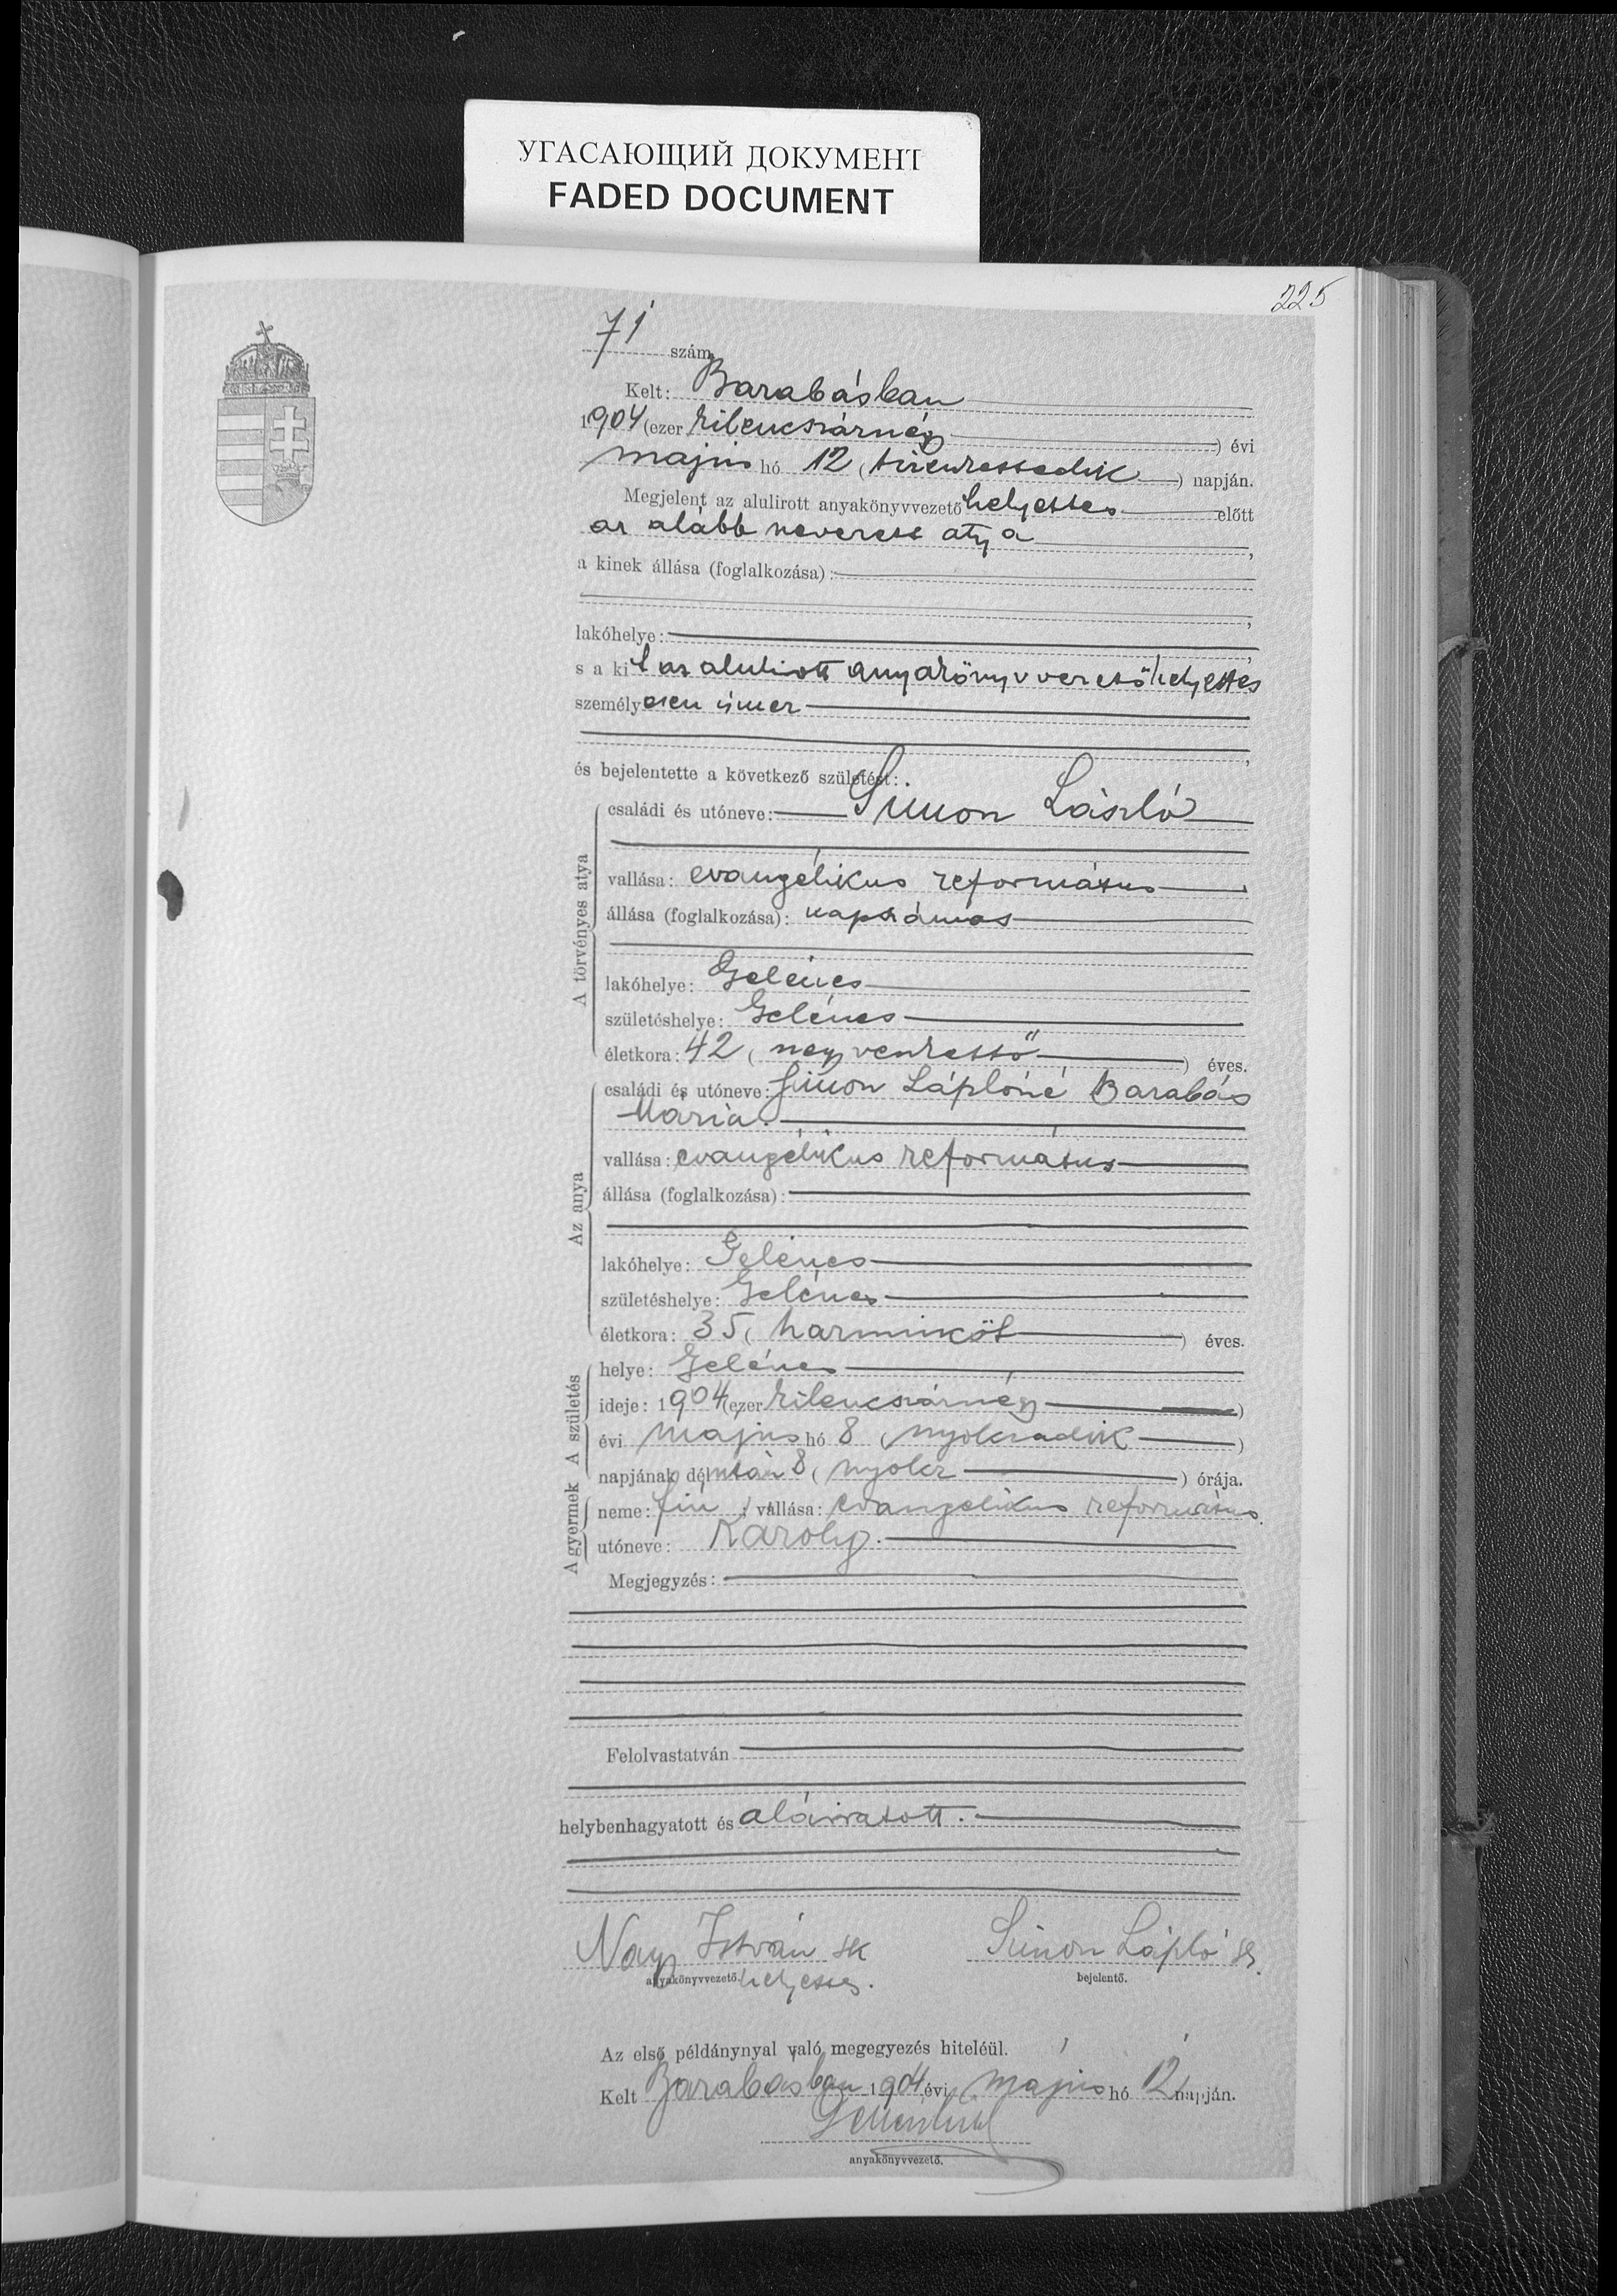 УГАСАЮЩИЙ ДОКУМЕНТ
FADED DOCUMENT
225
71 szám.
Kelt: Barabásban
1904 (ezer kilencszáznégy ) évi
majus hó 12 ( tizenkettedik ) napján.
Megjelent az alulirott anyakönyvvezető helyettes előtt
az alább nevezett atya ,
a kinek állása (foglalkozása):
,
lakóhelye: ,
s a kit az alulirott anyakönyvvezető helyettes
személyesen ismer
,
és bejelentette a következő születést:
A törvényes atya
családi és utóneve: Simon László
vallása: evangélikus református
állása (foglalkozása): napszámos
lakóhelye: Gelénes
születéshelye: Gelénes
életkora: 42 ( negyvenkettő ) éves.
Az anya
családi és utóneve: Simon Lászlóné Barabás
Mária.
vallása: evangélikus református
állása (foglalkozása):
lakóhelye: Gelénes
születéshelye: Gelénes
életkora: 35 ( harminköt ) éves.
A születés
helye: Gelénes
ideje: 1904 (ezer kilencszáznégy )
évi majus hó 8 ( nyolczadik )
napjának délután 8 ( nyolcz ) órája.
A gyermek
neme: fiú ; vallása: evangelikus református.
utóneve: Károly.
Megjegyzés:
Felolvastatván
helybenhagyatott és aláiratott.
Nagy István sk Simon László sk.
anyakönyvvezető. helyettes. bejelentő.
Az első példánynyal való megegyezés hiteléül.
Kelt Barabásban 1904 évi május hó 12 napján.
anyakönyvvezető.